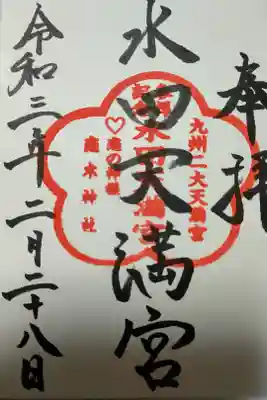 奉拝
九州二大天満宮
水田天満宮
♡恋の神様
恋木神社
令和三年二月二十八日